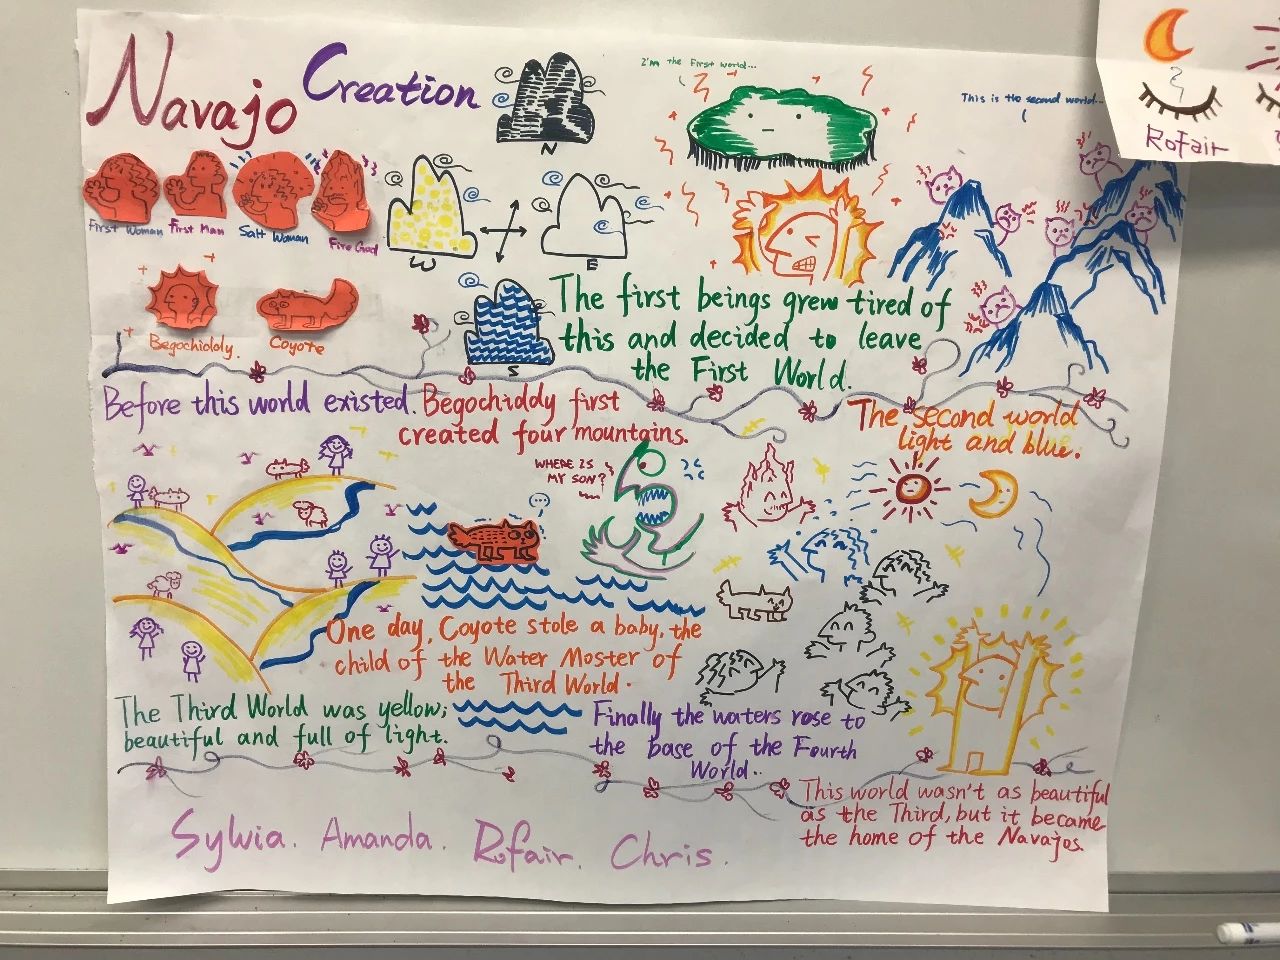 Navajo Creation
I'm the First world...
This is the second world...
N
W
E
S
First Woman
First Man
Salt Woman
Fire God
Begochiddy.
Coyote
The first beings grew tired of
this and decided to leave
the First World.
Before this world existed. Begochiddy first
created four mountains.
The second world
light and blue.
WHERE IS
MY SON?
One day, Coyote stole a baby, the
child of the Water Moster of
the Third World.
The Third World was yellow;
beautiful and full of light.
Finally the waters rose to
the base of the Fourth
World..
This world wasn't as beautiful
as the Third, but it became
the home of the Navajos.
Sylvia. Amanda. Rofair. Chris.
Rofair